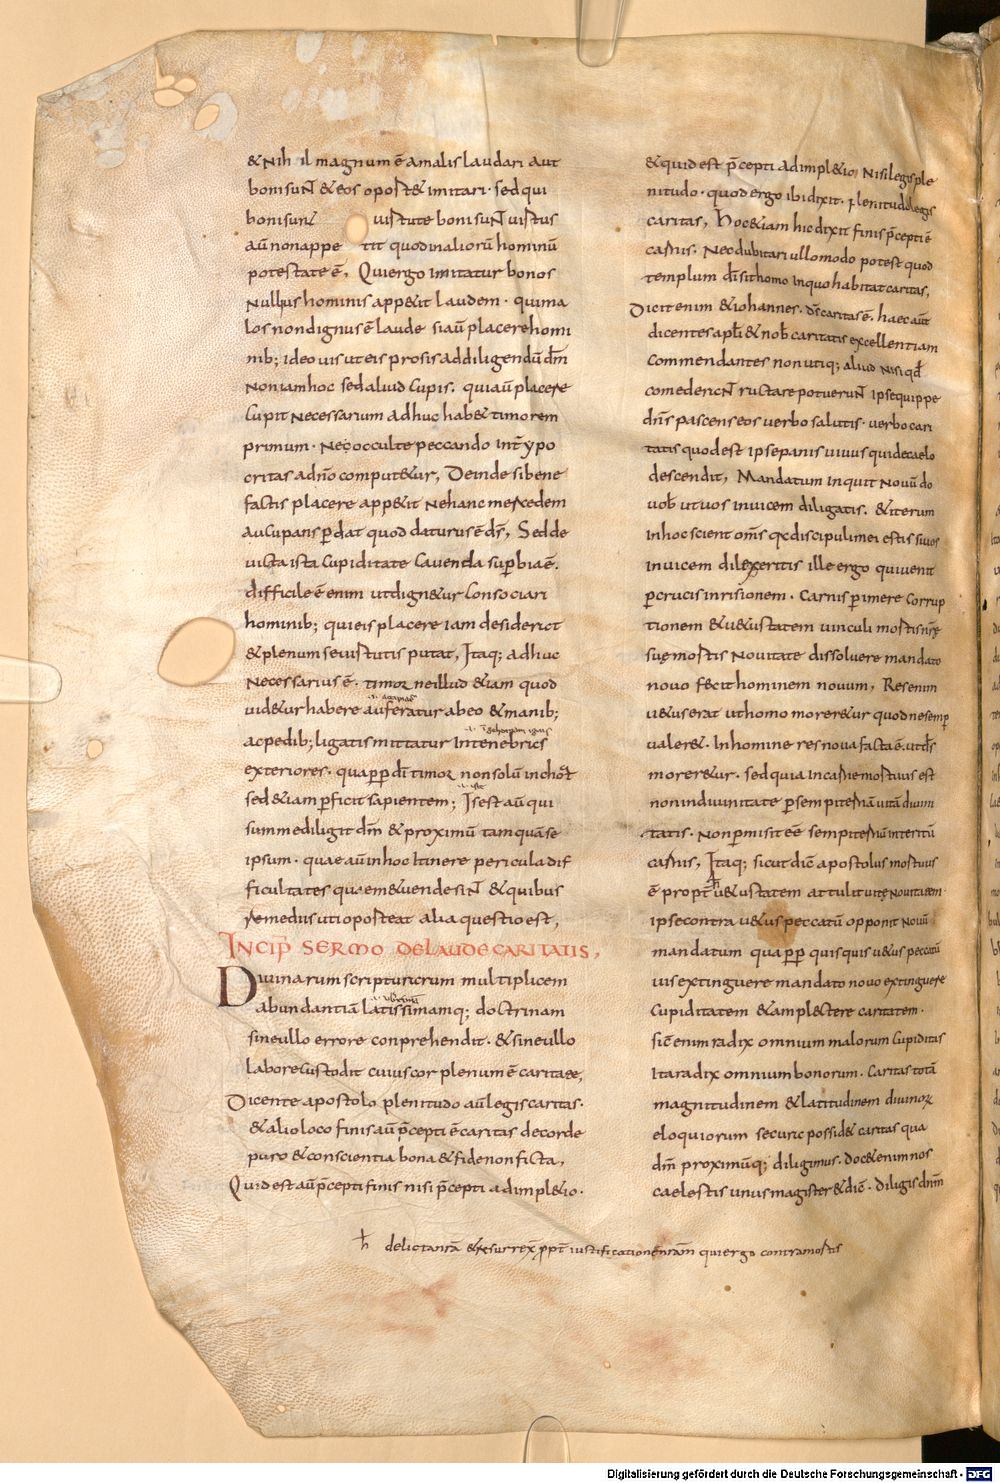 & Nihil magnum ē amalis laudari aut
boni sunt & eos oport& imitari · sed qui
boni sunt uirtute boni sunt uirtus
aū non appetit quod in aliorū hominū
potestate ē, Qui ergo imitatur bonos
Nullius hominis app&it laudem · qui ma
los non dignus ē laude si aū placere homi
nib; ideo uis ut eis prosis ad diligendū dm̄
Non iam hoc sed aliud cupis. quia aū placere
cupit Necessarium adhuc hab& timorem
primum · Nec occulte peccando int̄ ypo
critas adn̄o comput&ur, Deinde si bene
factis placere app&it Ne hanc mercedem
aucupans ꝑdat quod daturus ē ds̄, Sed de
uicta ista cupiditate cauenda suꝑbia ē.
difficile ē enim ut dign&ur consociari
hominib; qui eis placere iam desiderat
& plenum se uirtutis putat, Itaq; adhuc
Necessarius ē · timor ne illud &iam quod
uid&ur habere auferatur ab eo & manib;
ac pedib; ligatis mittatur In tenebras
exteriores · quaꝓp dī timor non solū inchoat
sed &iam ꝑficit sapientem; Is est aū qui
summe diligit dm̄ & proximū tamquā se
ipsum · quae aū in hoc Itinere pericula dif
ficultates quaem &uendesint & quibus
remediis uti oporteat alia questio est,
INCIP̄ SERMO DE LAUDE CARITATIS,
Diuinarum scripturarum multiplicem
abundantiā latissimamq; doctrinam
sine ullo errore conprehendit · & sine ullo
labore custodit cuius cor plenum ē caritate,
Dicente apostolo plenitudo aū legis caritas ·
& alio loco finis aū p̄cepti ē caritas de corde
puro & conscientia bona & fide non ficta,
Quid est aū p̄cepti finis nisi p̄cepti adimpl&io ·
& quid est p̄cepti adimpl&io, Nisi legis ple
nitudo · quod ergo ibi dixit · plenitudo legis
caritas, hoc &iam hic dixit finis p̄cepti ē
caritas. Nec dubitari ullo modo potest quod
templum dī sit homo In quo habitat caritas,
Dicit enim & iohannes · ds̄ caritas ē · haec aūt
dicentes apłi & nob̄ caritatis excellentiam
commendantes non utiq; aliud Nisi qđ
comederant ructare potuerunt Ipse quippe
dn̄s pascens eos uerbo salutis · uerbo cari
tatis quod est ipse panis uiuus qui de caelo
descendit, Mandatum inquit Nouū do
uob̄ ut uos inuicem diligatis. & iterum
In hoc scient om̄s qa discipuli mei estis si uos
inuicem dilexeritis ille ergo qui uenit
ꝑ crucis inrisionem · Carnis ꝑimere corrup
tionem & u&ustatem uinculi mortis nr̄e
suę mortis Nouitate dissoluere mandato
nouo fecit hominem nouum, Res enim
u&us erat ut homo morer&ur quod ne semp
ualer&. In homine res noua facta ē · ut ds̄
morer&ur · sed quia In carne mortuus est
non in diuinitate ꝑ sempiternā uitā diuini
tatis · Non ꝑmisit eē sempiternū interitū
carnis, Itaq; sicut dic̄ apostolus mortuus
ē propt̄ u&ustatem attulit uitę nouitatem ·
ipse contra u&us peccatū opponit nouū
mandatum quaꝓp quisquis u&us peccatū
uis extinguere mandato nouo extinguere
cupiditatem & ampl&tere caritatem ·
sic̄ enim radix omnium malorum cupiditas
Ita radix omnium bonorum · Caritas totā
magnitudinem & latitudinem diuinor
eloquiorum secura possid& caritas qua
dm̄ proximūq; diligimus · doc& enim nos
caelestis unus magister & dic̄ · diligis dn̄m
h̄ delicta nr̄a & resurrex̄ ꝓpt̄ iustificationē nr̄am qui ergo contra mortis
Digitalisierung gefördert durch die Deutsche Forschungsgemeinschaft - DFG